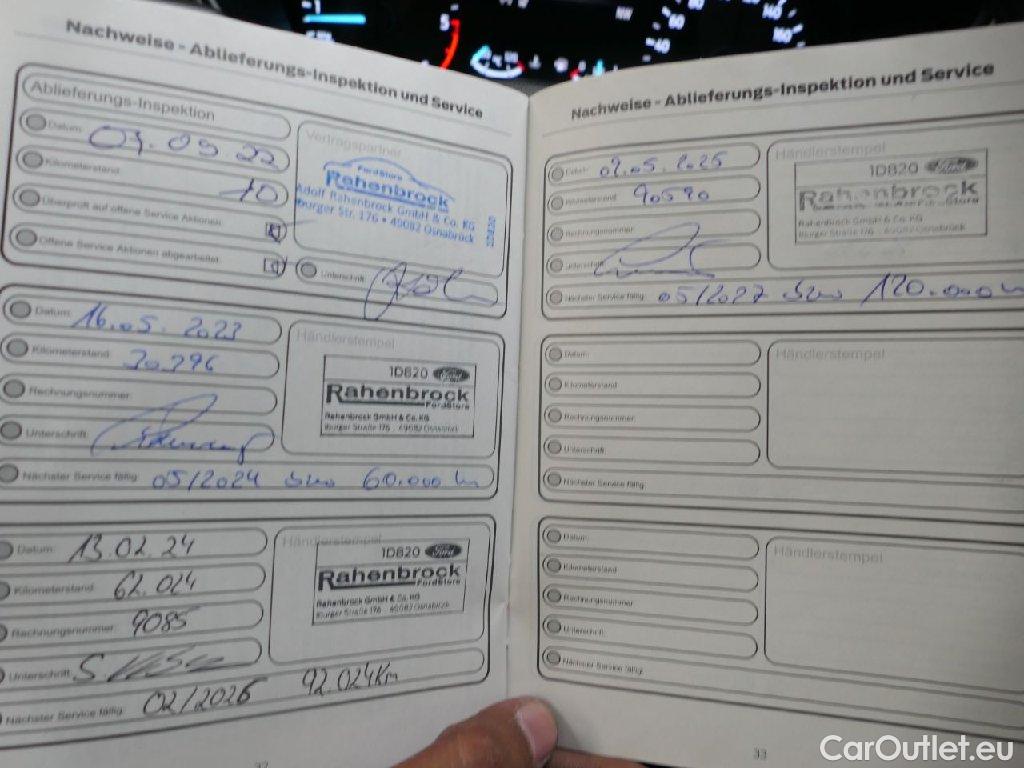 Nachweise - Ablieferungs-Inspektion und Service
Ablieferungs-Inspektion
Datum:
Kilometerstand: 10
Überprüft auf offene Service Aktionen:
Offene Service Aktionen abgearbeitet:
Vertragspartner
FordStore
Rahenbrock
Adolf Rahenbrock GmbH & Co. KG
Iburger Str. 176 • 49082 Osnabrück
1D820
Unterschrift:
Datum: 16.05.2023
Kilometerstand: 30.796
Rechnungsnummer:
Unterschrift:
Nächster Service fällig: 05/2024 bzw 60.000 km
Händlerstempel
1D820 Ford
Rahenbrock
FordStore
Rahenbrock GmbH & Co. KG
Iburger Straße 176 . 49082 Osnabrück
Datum: 13.02.24
Kilometerstand: 62.024
Rechnungsnummer: 9085
Unterschrift:
Nächster Service fällig: 02/2026 92.024Km
Händlerstempel
1D820 Ford
Rahenbrock
FordStore
Rahenbrock GmbH & Co. KG
Iburger Straße 176 . 49082 Osnabrück
Nachweise - Ablieferungs-Inspektion und Service
Datum: 02.05.2025
Kilometerstand: 90590
Rechnungsnummer:
Unterschrift:
Nächster Service fällig: 05/2027 bzw 120.000 k
Händlerstempel
1D820 Ford
Rahenbrock
FordStore
Rahenbrock GmbH & Co. KG
Iburger Straße 176 . 49082 Osnabrück
Datum:
Kilometerstand:
Rechnungsnummer:
Unterschrift:
Nächster Service fällig:
Händlerstempel
Datum:
Kilometerstand:
Rechnungsnummer:
Unterschrift:
Nächster Service fällig:
Händlerstempel
33
CarOutlet.eu